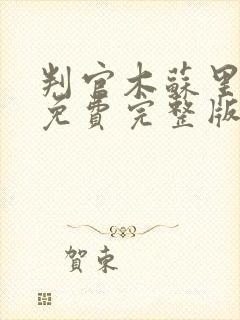 判官木蘇里
免費完整版
賀東